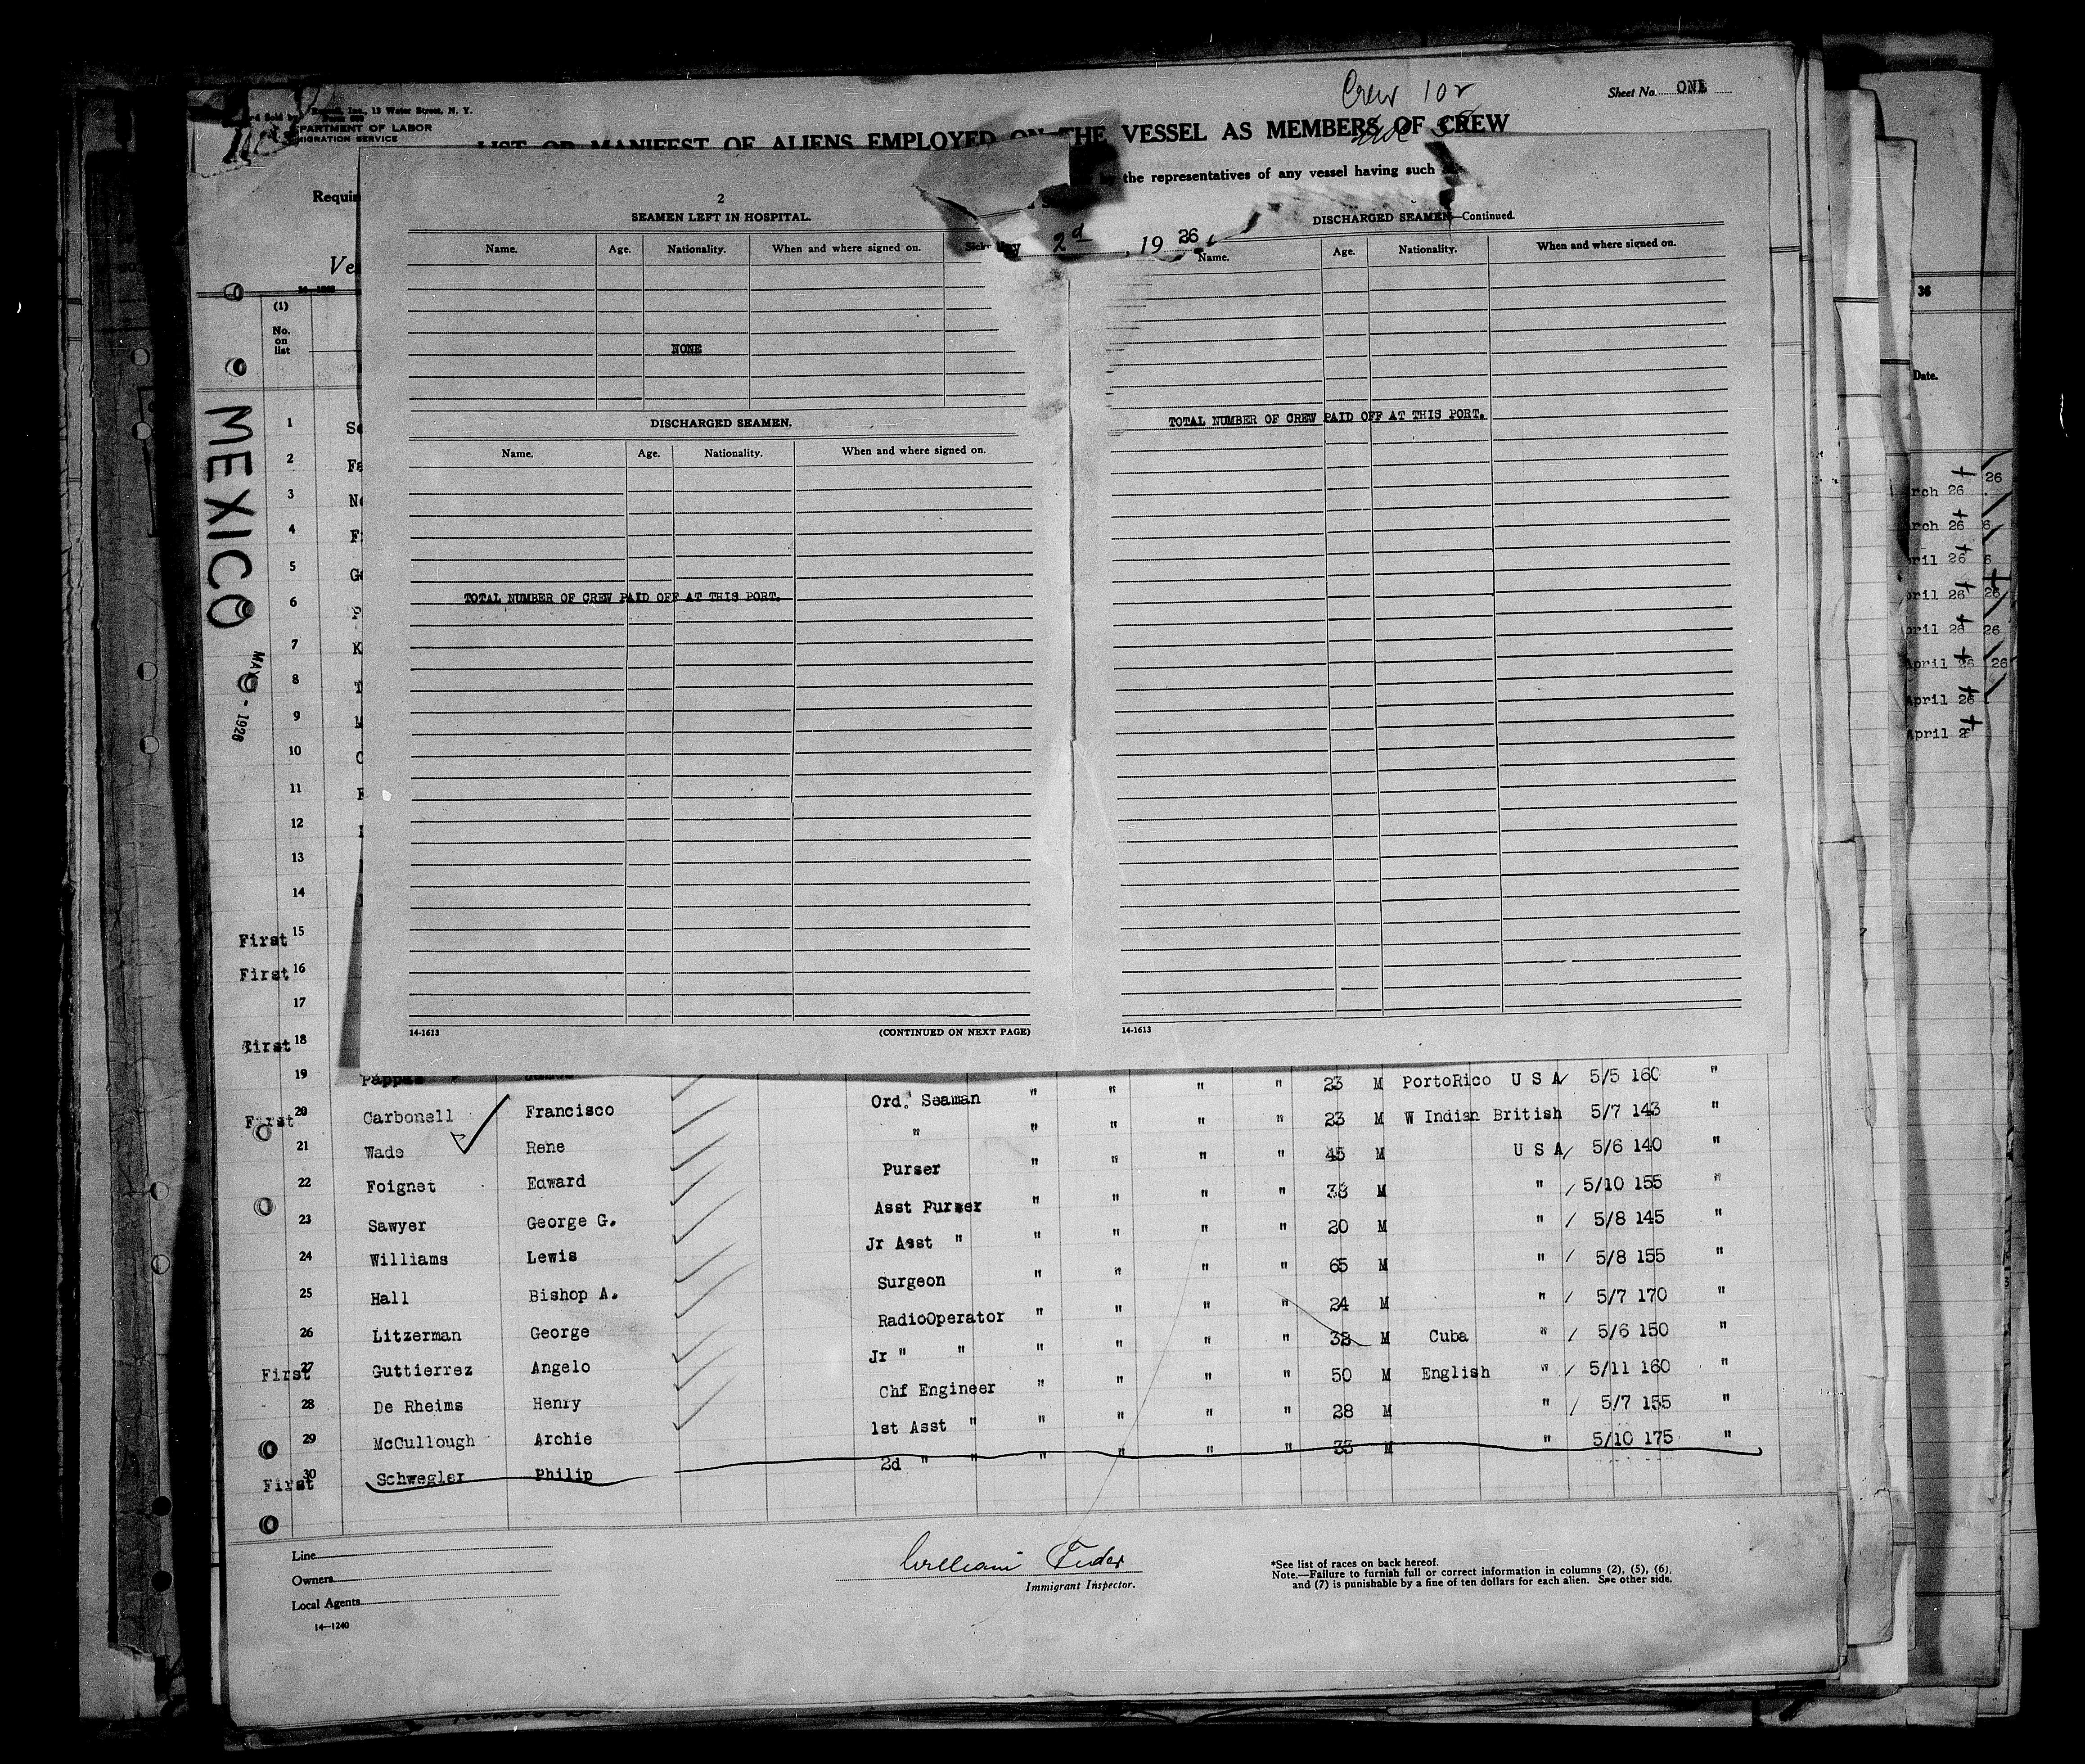 Crew 102
Sheet No. ONE
Inc., 13 Water Street, N. Y.
DEPARTMENT OF LABOR
IMMIGRATION SERVICE
LIST OR MANIFEST OF ALIENS EMPLOYED ON THE VESSEL AS MEMBERS OF CREW
by the representatives of any vessel having such
Requir
Ve
2d , 19 26
(1)
No. on list
2
SEAMEN LEFT IN HOSPITAL.
Name. Age. Nationality. When and where signed on.
NONE
DISCHARGED SEAMEN.
Name. Age. Nationality. When and where signed on.
TOTAL NUMBER OF CREW PAID OFF AT THIS PORT.
14-1613 (CONTINUED ON NEXT PAGE)
DISCHARGED SEAMEN—Continued.
Name. Age. Nationality. When and where signed on.
TOTAL NUMBER OF CREW PAID OFF AT THIS PORT.
14-1613
MEXICO
MAY - 1926
1 Se
2 Fa
3 Ne
4 F
5 Ge
6
7 K
8
9
10
11
12
13
14
First 15
First 16
17
First 18
19 Pappas James 23 M PortoRico U S A 5/5 160 "
First 20 Carbonell Francisco Ord. Seaman " " " " 23 M W Indian British 5/7 143 "
21 Wade Rene " " " " " 45 M U S A 5/6 140 "
22 Foignet Edward Purser " " " " 38 M " 5/10 155 "
23 Sawyer George G. Asst Purser " " " " 20 M " 5/8 145 "
24 Williams Lewis Jr Asst " " " " " 65 M " 5/8 155 "
25 Hall Bishop A. Surgeon " " " " 24 M " 5/7 170 "
26 Litzerman George RadioOperator " " " " 38 M Cuba " 5/6 150 "
First 27 Guttierrez Angelo Jr " " " " " " 50 M English " 5/11 160 "
28 De Rheims Henry Chf Engineer " " " " 28 M " 5/7 155 "
29 McCullough Archie 1st Asst " " " " " 33 M " 5/10 175 "
First 30 Schwegler Philip 2d " " " " " "
Line
Owners
Local Agents
14—1240
William Tudor
Immigrant Inspector.
*See list of races on back hereof.
Note.—Failure to furnish full or correct information in columns (2), (5), (6),
and (7) is punishable by a fine of ten dollars for each alien. See other side.
36
Date.
rch 26 26
rch 26 6
ril 26 6
pril 26 26
pril 26 26
April 26 26
April 26
April 2